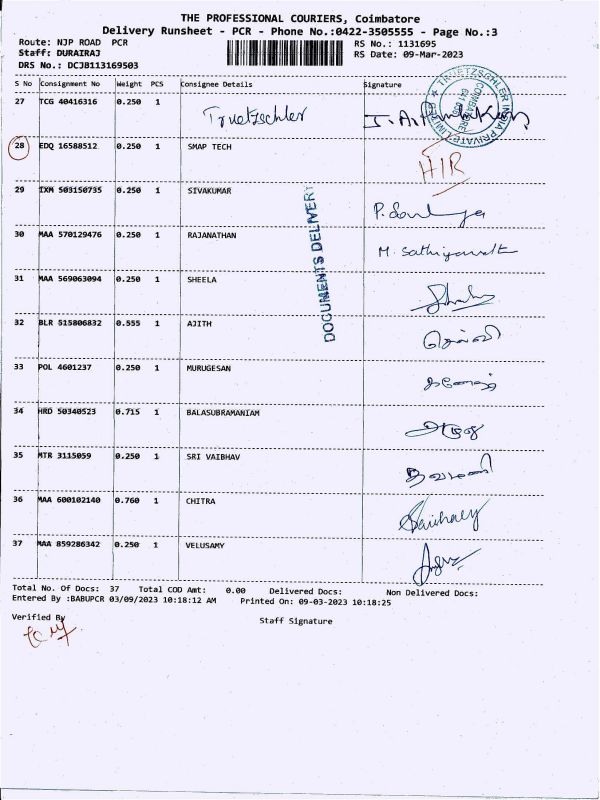 THE PROFESSIONAL COURIERS, Coimbatore
Delivery Runsheet - PCR - Phone No.:0422-3505555 - Page No.:3
Route: NJP ROAD PCR
Staff: DURAIRAJ
DRS No.: DCJB113169503
RS No.: 1131695
RS Date: 09-Mar-2023
S No Consignment No Weight PCS Consignee Details Signature
27 TCG 40416316 0.250 1 Truetzschler
TRUETZSCHLER INDIA PRIVATE LIMITED
COIMBATORE
28 EDQ 16588512 0.250 1 SMAP TECH
29 IXM 503150735 0.250 1 SIVAKUMAR
30 MAA 570129476 0.250 1 RAJANATHAN
31 MAA 569063094 0.250 1 SHEELA
DOCUMENTS DELIVERY
32 BLR 515806832 0.555 1 AJITH
33 POL 4601237 0.250 1 MURUGESAN
34 HRD 50340523 0.715 1 BALASUBRAMANIAM
35 MTR 3115059 0.250 1 SRI VAIBHAV
36 MAA 600102140 0.760 1 CHITRA
37 MAA 859286342 0.250 1 VELUSAMY
Total No. Of Docs: 37 Total COD Amt: 0.00 Delivered Docs: Non Delivered Docs:
Entered By :BABUPCR 03/09/2023 10:18:12 AM Printed On: 09-03-2023 10:18:25
Verified By
Staff Signature